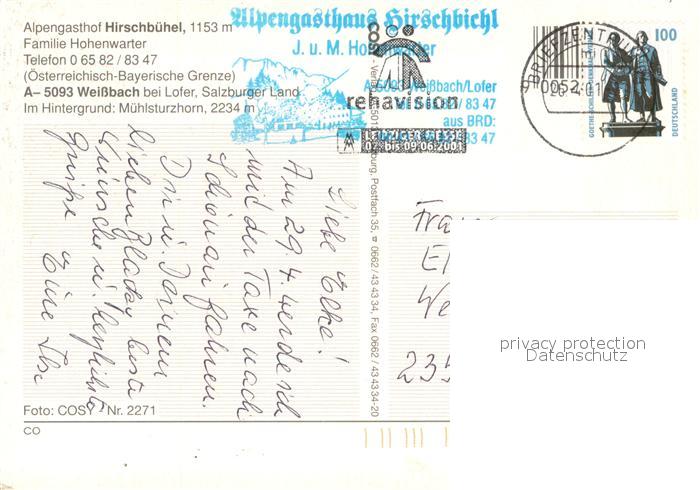 Alpengasthof Hirschbühel, 1153 m
Familie Hohenwarter
Telefon 0 65 82 / 83 47
(Österreichisch-Bayerische Grenze)
A– 5093 Weißbach bei Lofer, Salzburger Land
Im Hintergrund: Mühlsturzhorn, 2234 m
Alpengasthaus Hirschbichl
J. u. M. Hohenwarter
A-5093 Weißbach/Lofer
/ 83 47
aus BRD:
83 47
rehavision
LEIPZIGER MESSE
07. bis 09.06.2001
BRIEFZENTRUM
04.01
100
GOETHE-SCHILLER-DENKMAL WEIMAR
DEUTSCHLAND
Postfach 35, ☎ 0662/43 43 34, Fax 0662/43 43 34-20
Liebe Elke!
Am 29.4. werde ich
mit der Taxe nach
fahren.
Dir u. Deinem
lieben beste
Wünsche u. herzlichste
Grüße
Eure Ilse
Fra
El
We
235
privacy protection
Datenschutz
Foto: COSY Nr. 2271
CO